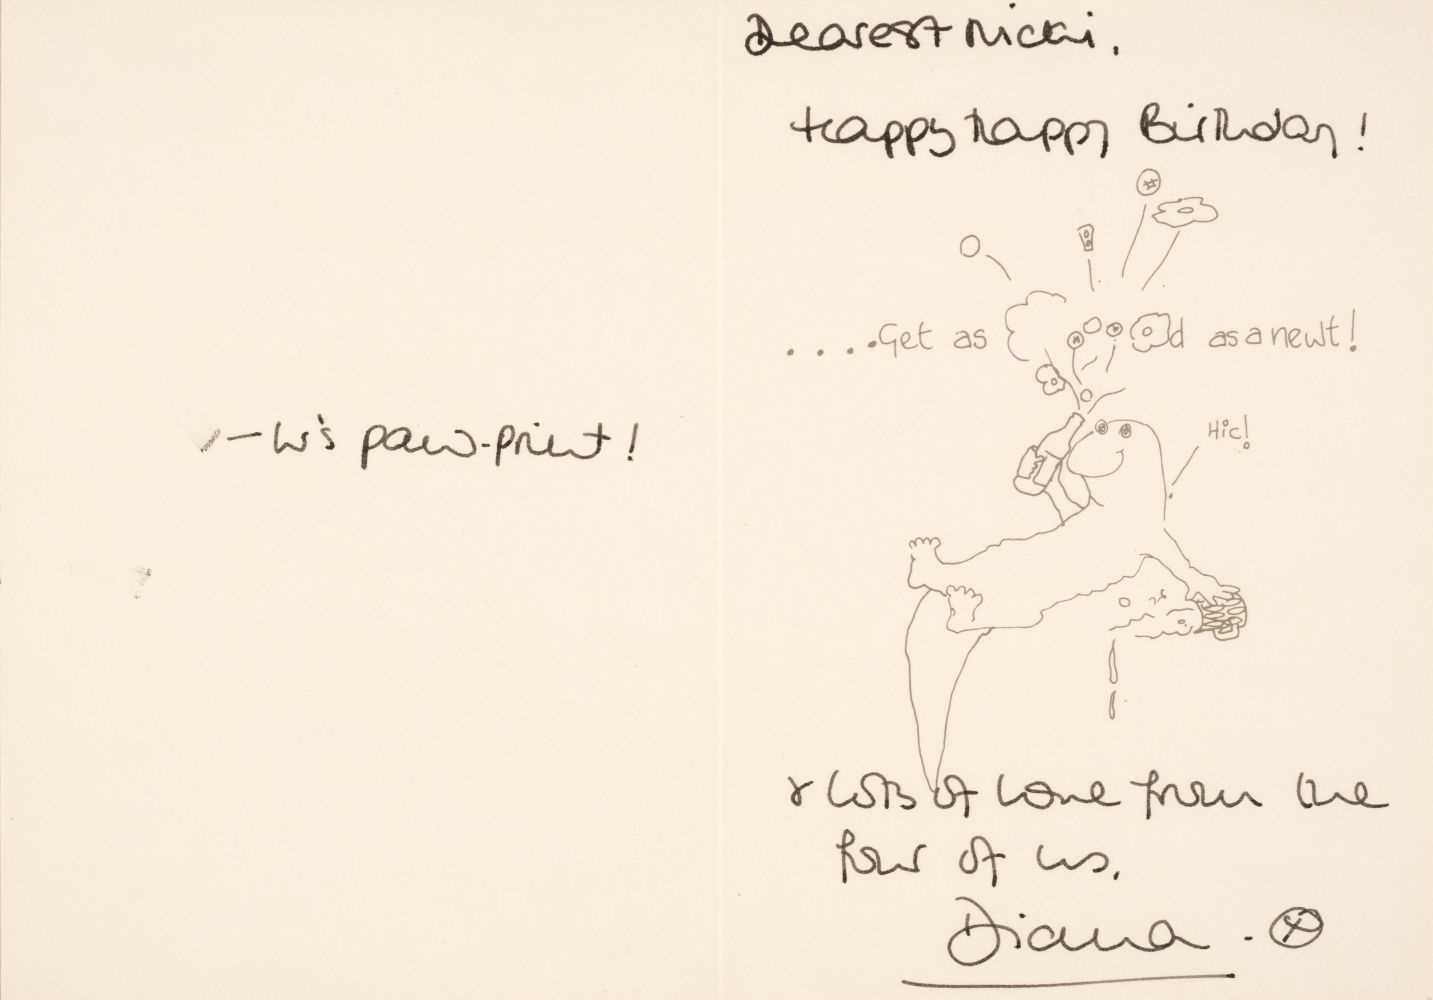 - W's paw-print!
Dearest Nicki,
Happy happy Birthday!
....Get as d as a newt!
Hic!
& lots of love from the
four of us,
Diana . x